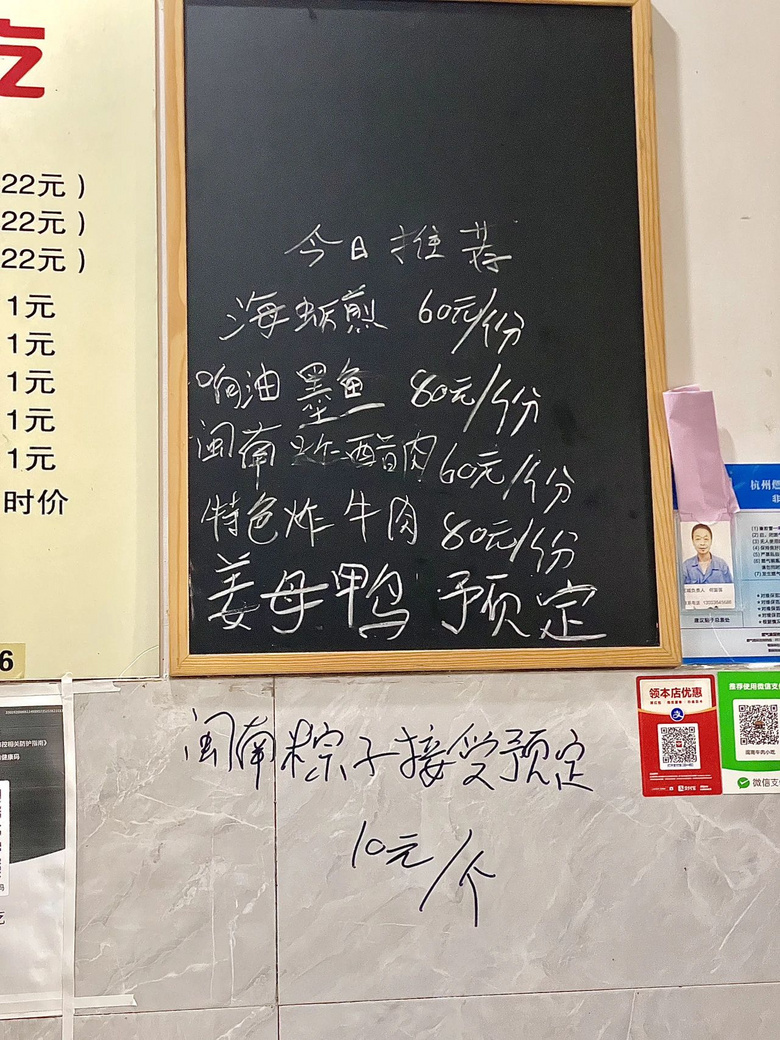 吃
22元）
22元）
22元）
1元
1元
1元
1元
1元
时价
6
今日推荐
海蛎煎 60元/份
响油墨鱼 80元/份
闽南炸醋肉 60元/份
特色炸牛肉 80元/份
姜母鸭 预定
闽南粽子接受预定
10元/个
杭州燃
领本店优惠
推荐使用微信支
闽南牛肉小吃
微信支